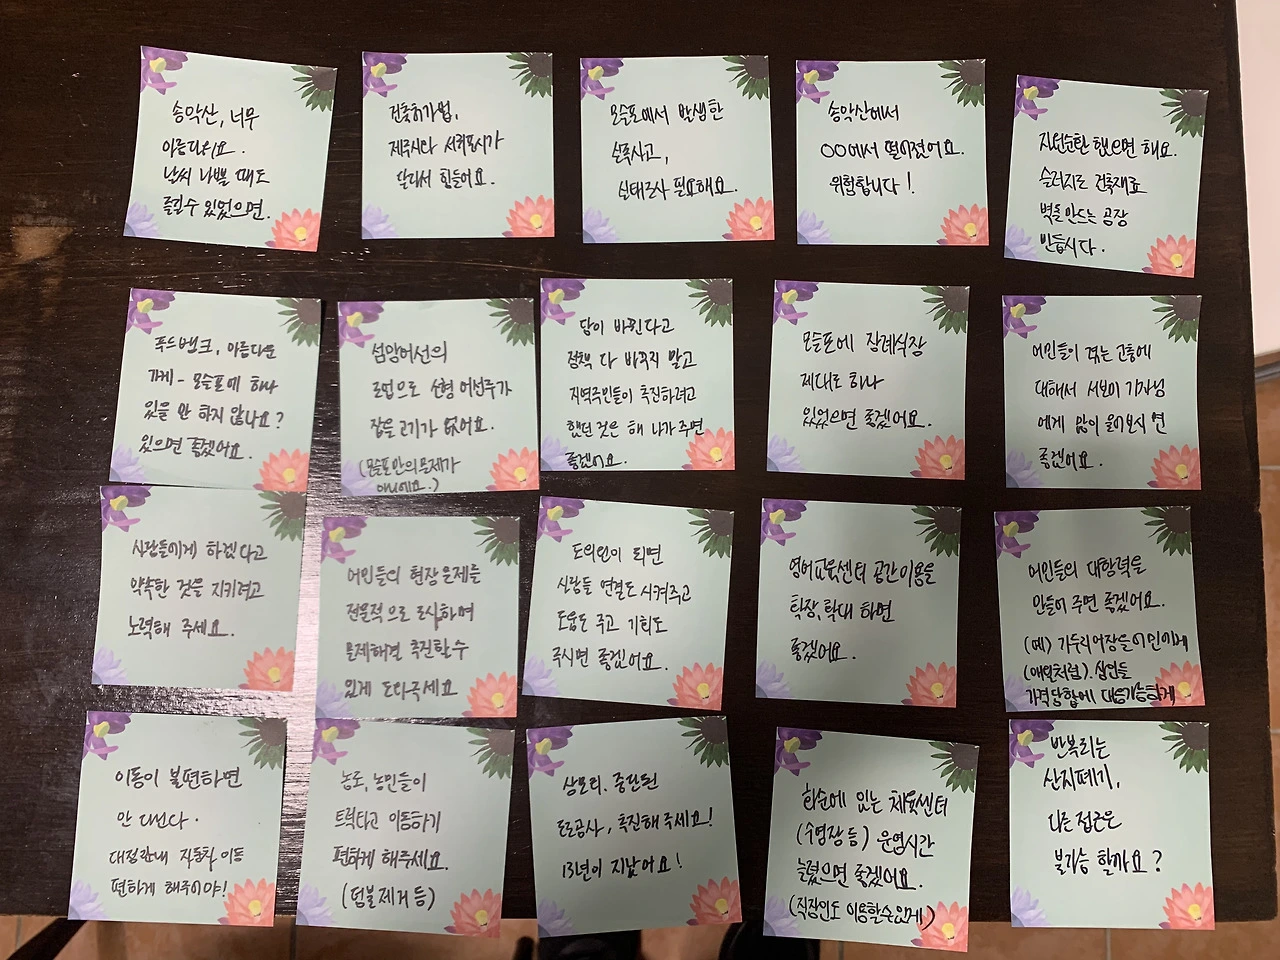 송악산, 너무
아름다워요.
날씨 나쁠 때도
즐길수 있었으면.
건축허가법,
제주시다 서귀포시가
달라서 힘들어요.
모슬포에서 발생한
실족사고,
실태조사 필요해요.
송악산에서
OO에서 떨어졌어요.
위험합니다!
자원순환 했으면 해요.
슬러지로 건축재료
벽돌만드는 공장
만듭시다.
푸드뱅크, 아름다운
가게 - 모슬포에 하나
있을 만 하지 않나요?
있으면 좋겠어요.
선망어선의
조업으로 소형 어선주가
잡을 고기가 없어요.
(모슬포만의 문제가
아니에요.)
당이 바뀐다고
정책 다 바꾸지 말고
지역주민들이 추진하려고
했던 것은 해 나가 주면
좋겠어요.
모슬포에 장례식장
제대로 하나
있었으면 좋겠어요.
어민들이 겪는 고충에
대해서 서보미 기자님
에게 많이 물어보시면
좋겠어요.
사람들에게 하겠다고
약속한 것을 지키려고
노력해 주세요.
어민들의 현장 문제를
전문적으로 조사하여
문제해결 추진할 수
있게 도와주세요
도의원이 되면
사람들 연결도 시켜주고
도움도 주고 기획도
주시면 좋겠어요.
영어교육센터 공간이용을
확장, 확대 하면
좋겠어요.
어민들의 대항력을
만들어 주면 좋겠어요.
(예) 가두리어장들이 민어에게
(애월처럼). 상인들
가격담합에 대응가능하게
이동이 불편하면
안 다닌다.
대정관내 자동차 이동
편하게 해주어야!
농로, 농민들이
트럭타고 이동하기
편하게 해주세요.
(덤불제거 등)
상모리. 중단된
도로공사, 추진해 주세요!
13년이 지났어요!
화순에 있는 체육센터
(수영장 등) 운영시간
늘렸으면 좋겠어요.
(직장인도 이용할수있게)
반복되는
산지폐기,
다른 접근은
불가능 할까요?